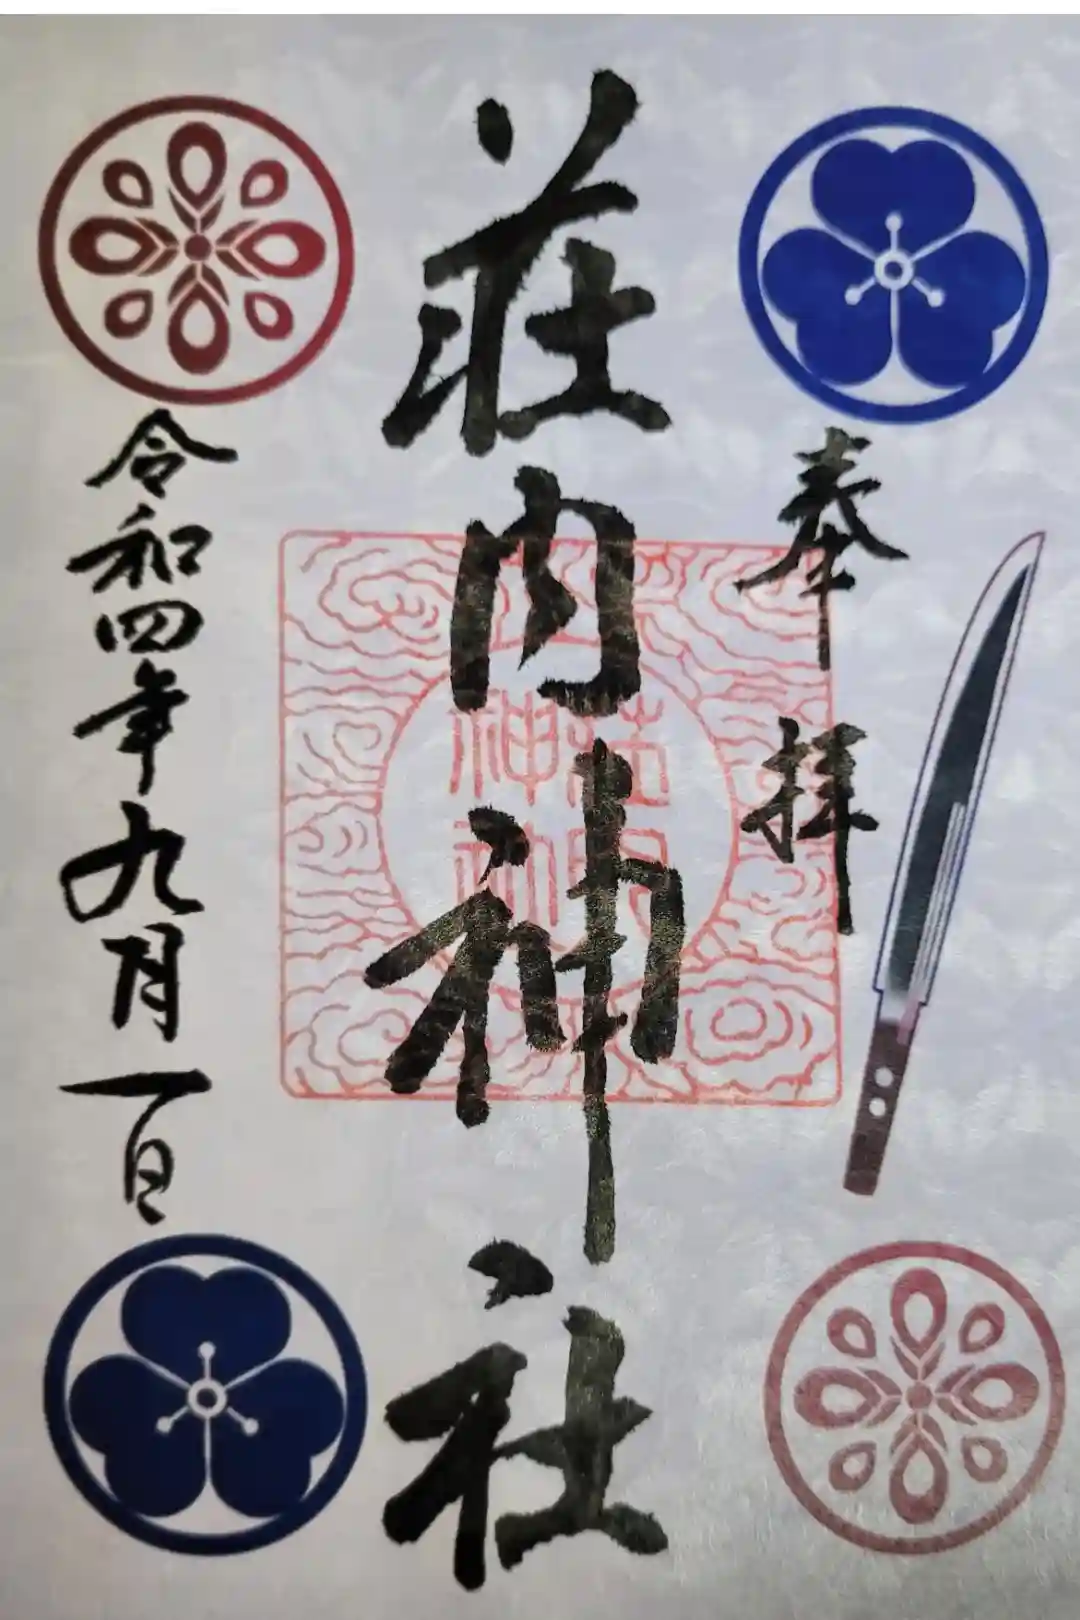 奉拝
荘内神社
荘内
神社
令和四年九月一日